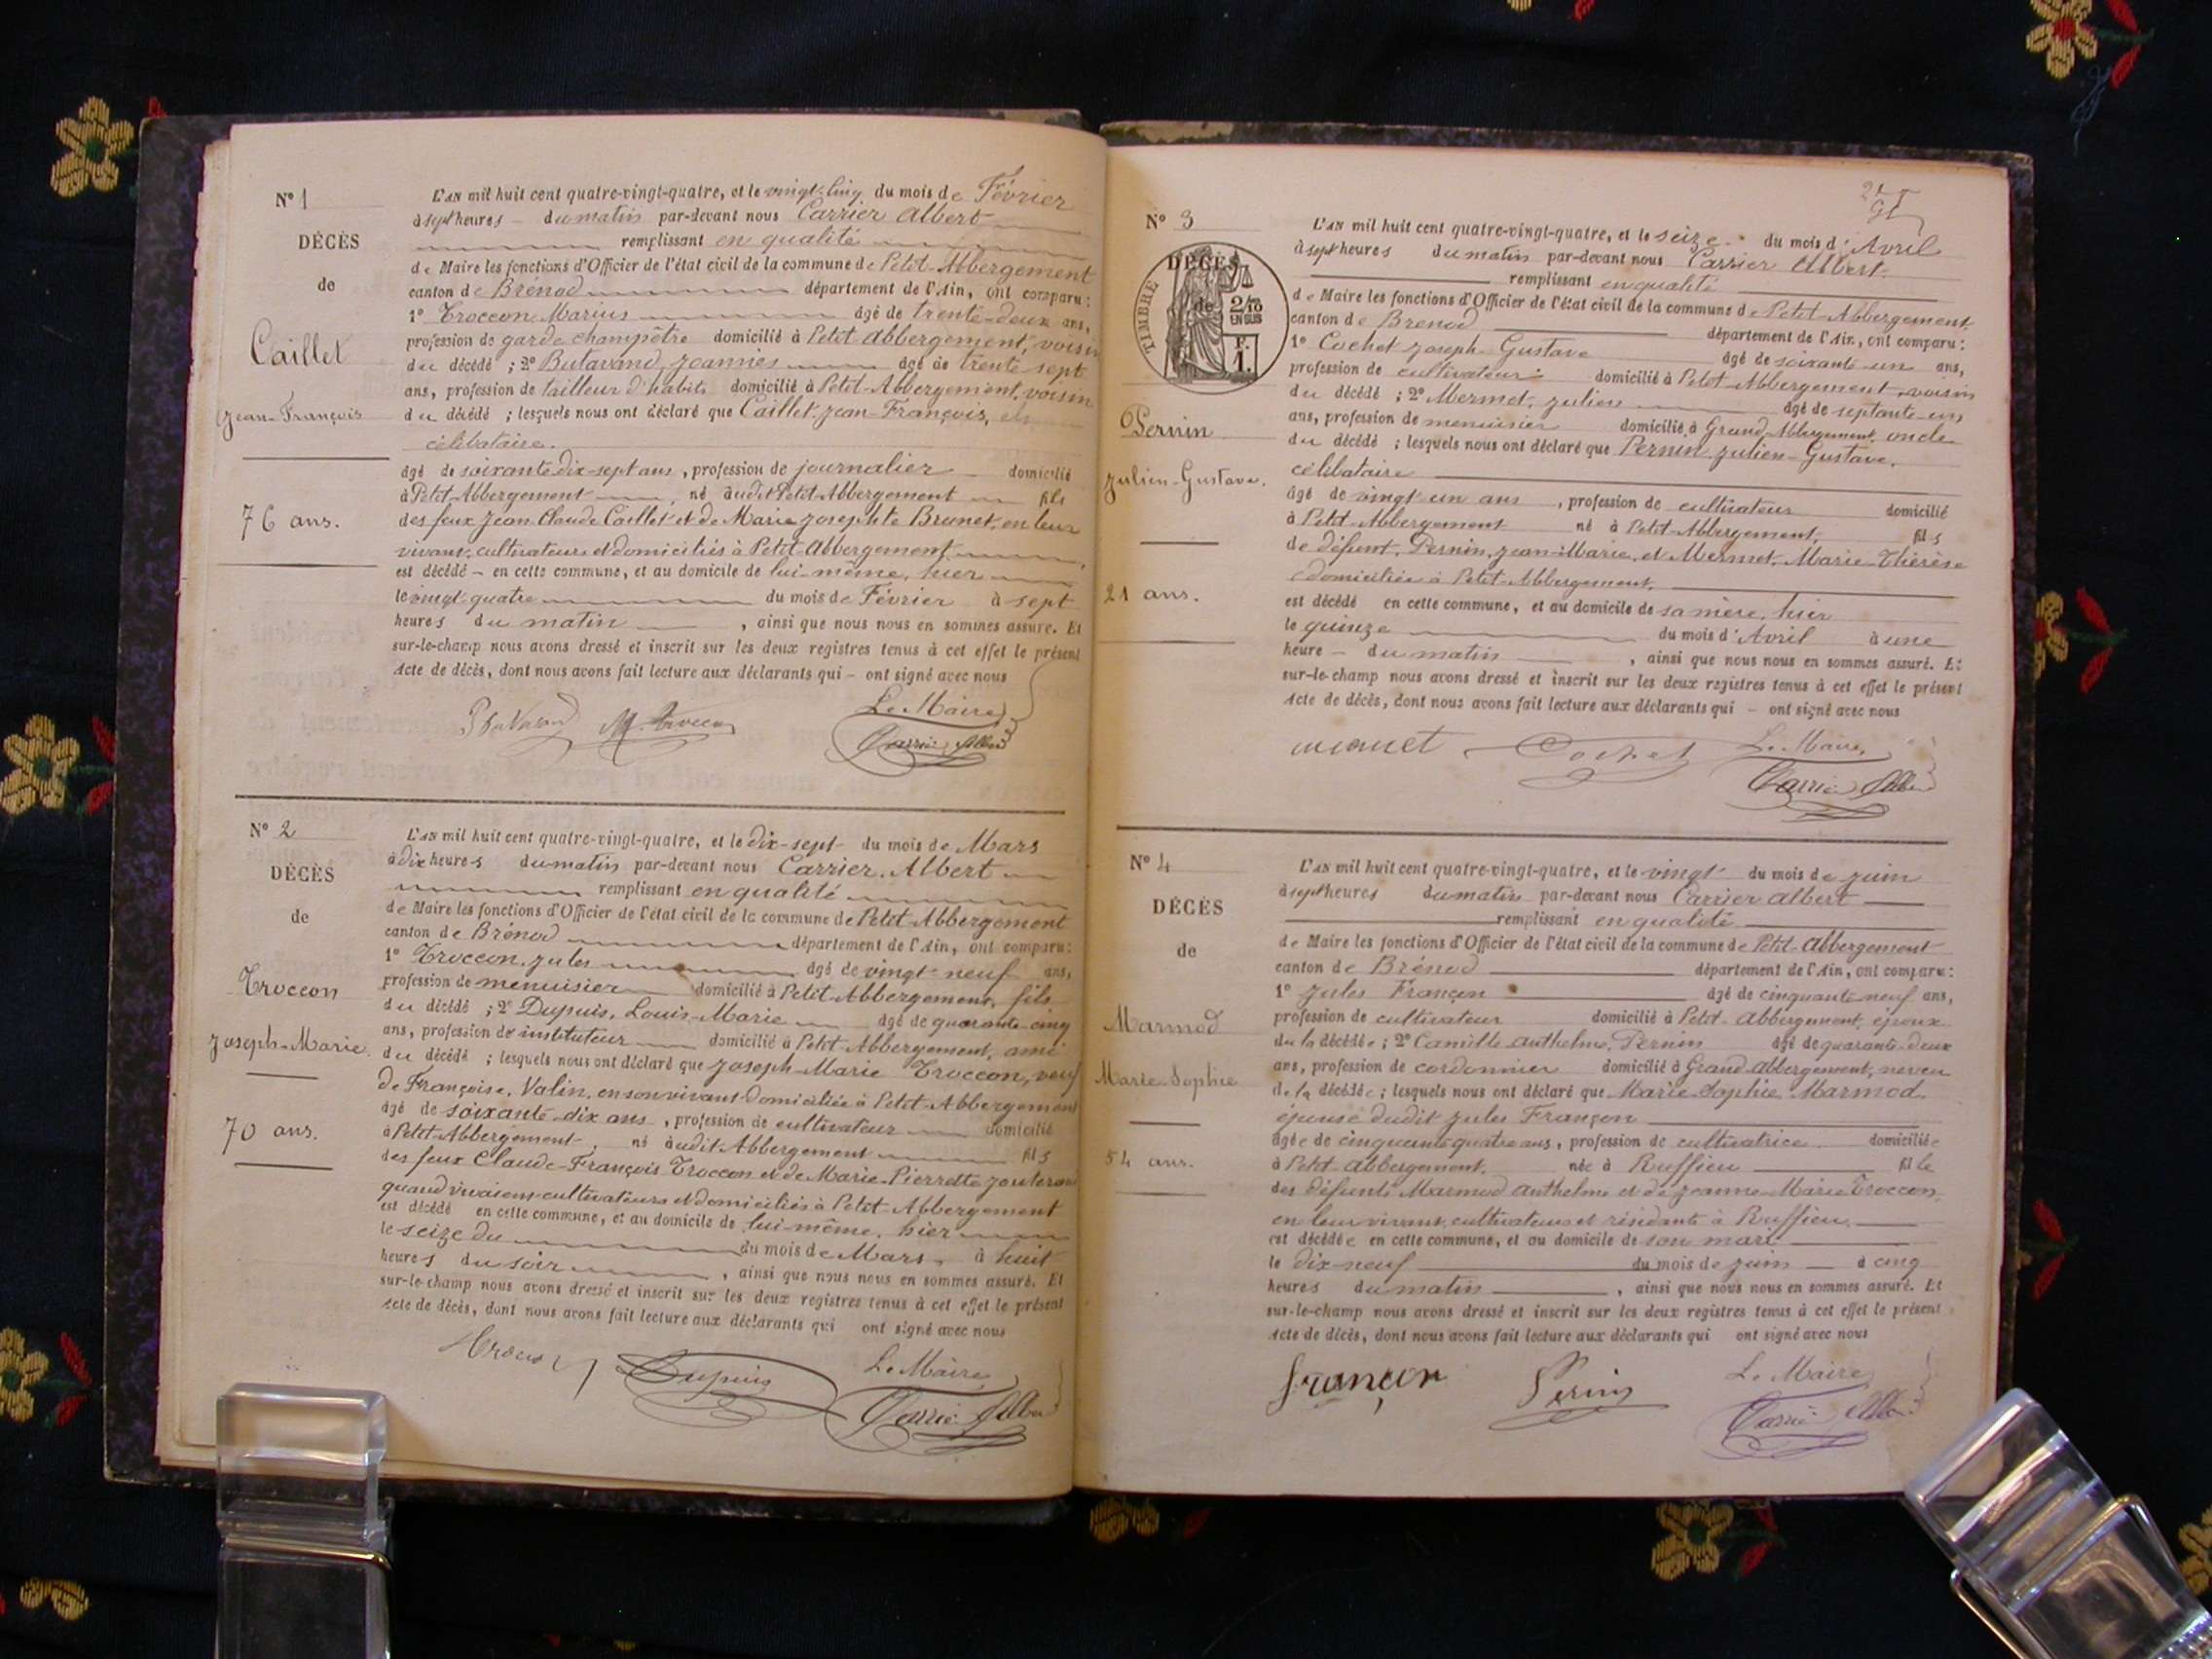 N° 1
DÉCÈS
de
Caillet
Jean-François
76 ans.
L'AN mil huit cent quatre-vingt-quatre, et le vingt-cinq du mois de Février
à sept heures du matin par-devant nous Carrier Albert
remplissant en qualité
de Maire les fonctions d'Officier de l'état civil de la commune de Petit-Abbergement
canton de Brénod département de l'Ain, ont comparu:
1° Troccon Marius âgé de trente-deux ans,
profession de garde champêtre domicilié à Petit Abbergement, voisin
du décédé ; 2° Butavand, Joannès âgé de trente sept
ans, profession de tailleur d'habits domicilié à Petit-Abbergement, voisin
du décédé ; lesquels nous ont déclaré que Caillet Jean-François,
célibataire.
âgé de soixante dix-sept ans, profession de journalier domicilié
à Petit-Abbergement, né audit Petit Abbergement fils
des feux Jean Claude Caillet et de Marie Josephte Brunet, en leur
vivant, cultivateurs et domiciliés à Petit-Abbergement,
est décédé en cette commune, et au domicile de lui-même, hier
le vingt-quatre du mois de Février à sept
heures du matin, ainsi que nous nous en sommes assuré. Et
sur-le-champ nous avons dressé et inscrit sur les deux registres tenus à cet effet le présent
acte de décès, dont nous avons fait lecture aux déclarants qui ont signé avec nous
Le Maire
Carrier Albert
N° 2
DÉCÈS
de
Troccon
Joseph-Marie.
70 ans.
L'AN mil huit cent quatre-vingt-quatre, et le dix-sept du mois de Mars
à dix heures du matin par-devant nous Carrier. Albert
remplissant en qualité
de Maire les fonctions d'Officier de l'état civil de la commune de Petit-Abbergement
canton de Brénod département de l'Ain, ont comparu:
1° Troccon. Jules âgé de vingt-neuf ans,
profession de menuisier domicilié à Petit-Abbergement, fils
du décédé ; 2° Dupuis, Louis-Marie âgé de quarante-cinq
ans, profession de instituteur domicilié à Petit-Abbergement, ami
du décédé ; lesquels nous ont déclaré que Joseph-Marie Troccon, veuf
de Françoise. Valin, en son vivant domiciliée à Petit-Abbergement
âgé de soixante-dix ans, profession de cultivateur domicilié
à Petit-Abbergement, né audit Abbergement fils
des feux Claude-François Troccon et de Marie-Pierrette
quand vivaient cultivateurs et domiciliés à Petit-Abbergement
est décédé en cette commune, et au domicile de lui-même, hier
le seize du du mois de Mars, à huit
heures du soir, ainsi que nous nous en sommes assuré. Et
sur-le-champ nous avons dressé et inscrit sur les deux registres tenus à cet effet le présent
acte de décès, dont nous avons fait lecture aux déclarants qui ont signé avec nous
Dupuis
Le Maire
Carrier Albert
N° 3
DÉCÈS
de
TIMBRE
2/10
EN SUS
F.
1.
Pernin
Julien-Gustave.
21 ans.
L'AN mil huit cent quatre-vingt-quatre, et le seize du mois d'Avril
à sept heures du matin par-devant nous Carrier Albert.
remplissant en qualité
de Maire les fonctions d'Officier de l'état civil de la commune de Petit-Abbergement,
canton de Brenod département de l'Ain, ont comparu:
1° Cochet Joseph-Gustave âgé de soixante-un ans,
profession de cultivateur domicilié à Petit-Abbergement, voisin
du décédé ; 2° Mermet, Julien âgé de septante-un
ans, profession de menuisier domicilié à Grand Abbergement, oncle
du décédé ; lesquels nous ont déclaré que Pernin Julien-Gustave,
célibataire
âgé de vingt un ans, profession de cultivateur domicilié
à Petit-Abbergement né à Petit-Abbergement, fils
de défunt. Pernin, Jean-Marie, et Mermet, Marie-Thérèse
domiciliée à Petit-Abbergement.
est décédé en cette commune, et au domicile de sa mère, hier
le quinze du mois d'Avril à une
heure du matin, ainsi que nous nous en sommes assuré. Et
sur-le-champ nous avons dressé et inscrit sur les deux registres tenus à cet effet le présent
acte de décès, dont nous avons fait lecture aux déclarants qui ont signé avec nous
Cochet
Le Maire,
Carrier Albert
N° 4
DÉCÈS
de
Marmod
Marie-Sophie
54 ans.
L'AN mil huit cent quatre-vingt-quatre, et le vingt du mois de juin
à sept heures du matin par-devant nous Carrier Albert
remplissant en qualité
de Maire les fonctions d'Officier de l'état civil de la commune de Petit-Abbergement
canton de Brénod département de l'Ain, ont comparu:
1° Jules Françon âgé de cinquante-neuf ans,
profession de cultivateur domicilié à Petit-Abbergement, époux
de la décédée ; 2° Camille Anthelme. Pernin âgé de quarante-deux
ans, profession de cordonnier domicilié à Grand-Abbergement, neveu
de la décédée ; lesquels nous ont déclaré que Marie-Sophie Marmod
épouse dudit Jules Françon
âgée de cinquante quatre ans, profession de cultivatrice domiciliée
à Petit-Abbergement. née à Ruffieu fille
des défunts Marmod Anthelme et de Jeanne-Marie Troccon,
en leur vivant, cultivateurs et résidants à Ruffieu.
est décédée en cette commune, et au domicile de son mari
le dix-neuf du mois de juin à cinq
heures du matin, ainsi que nous nous en sommes assuré. Et
sur-le-champ nous avons dressé et inscrit sur les deux registres tenus à cet effet le présent
acte de décès, dont nous avons fait lecture aux déclarants qui ont signé avec nous
françon
Pernin
Le Maire
Carrier Albert